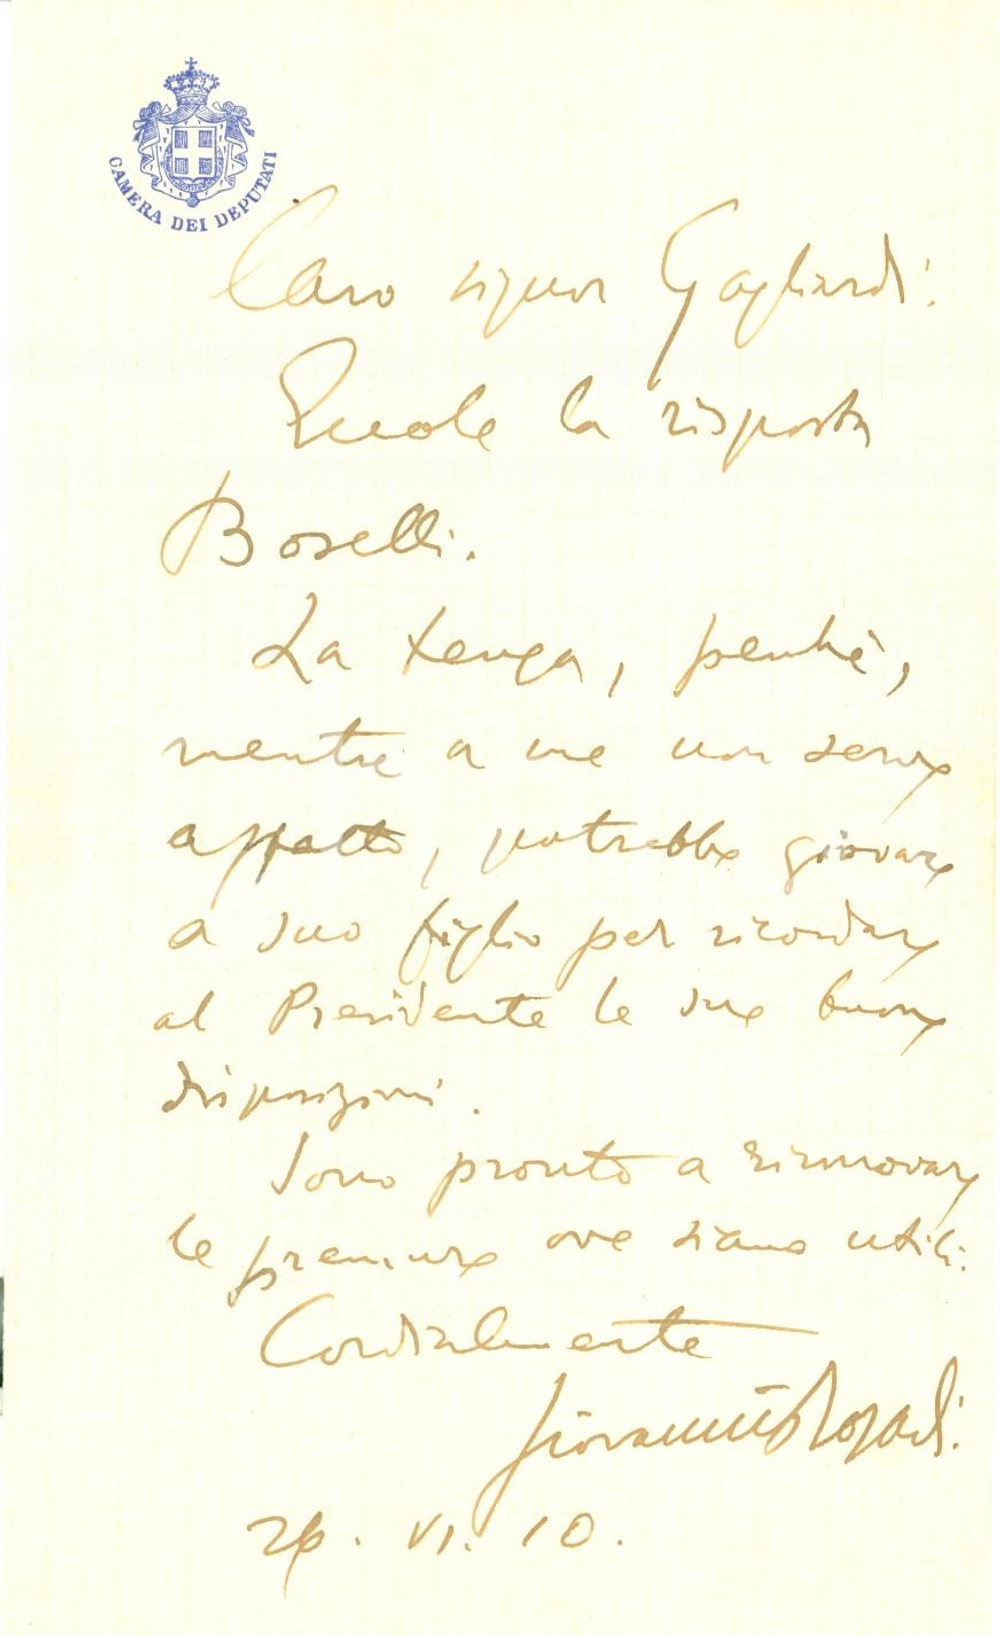 CAMERA DEI DEPUTATI
Caro signor Gagliardi:
Eccole la risposta
Boselli.
La tenga, perchè,
mentre a me non serve
affatto, potrebbe giovare
a suo figlio per ricordare
al Presidente le sue buone
disposizioni.
Sono pronto a rinnovare
le premure ove siano utili.
Cordialmente
Giovanni Rosadi.
26. VI. 10.